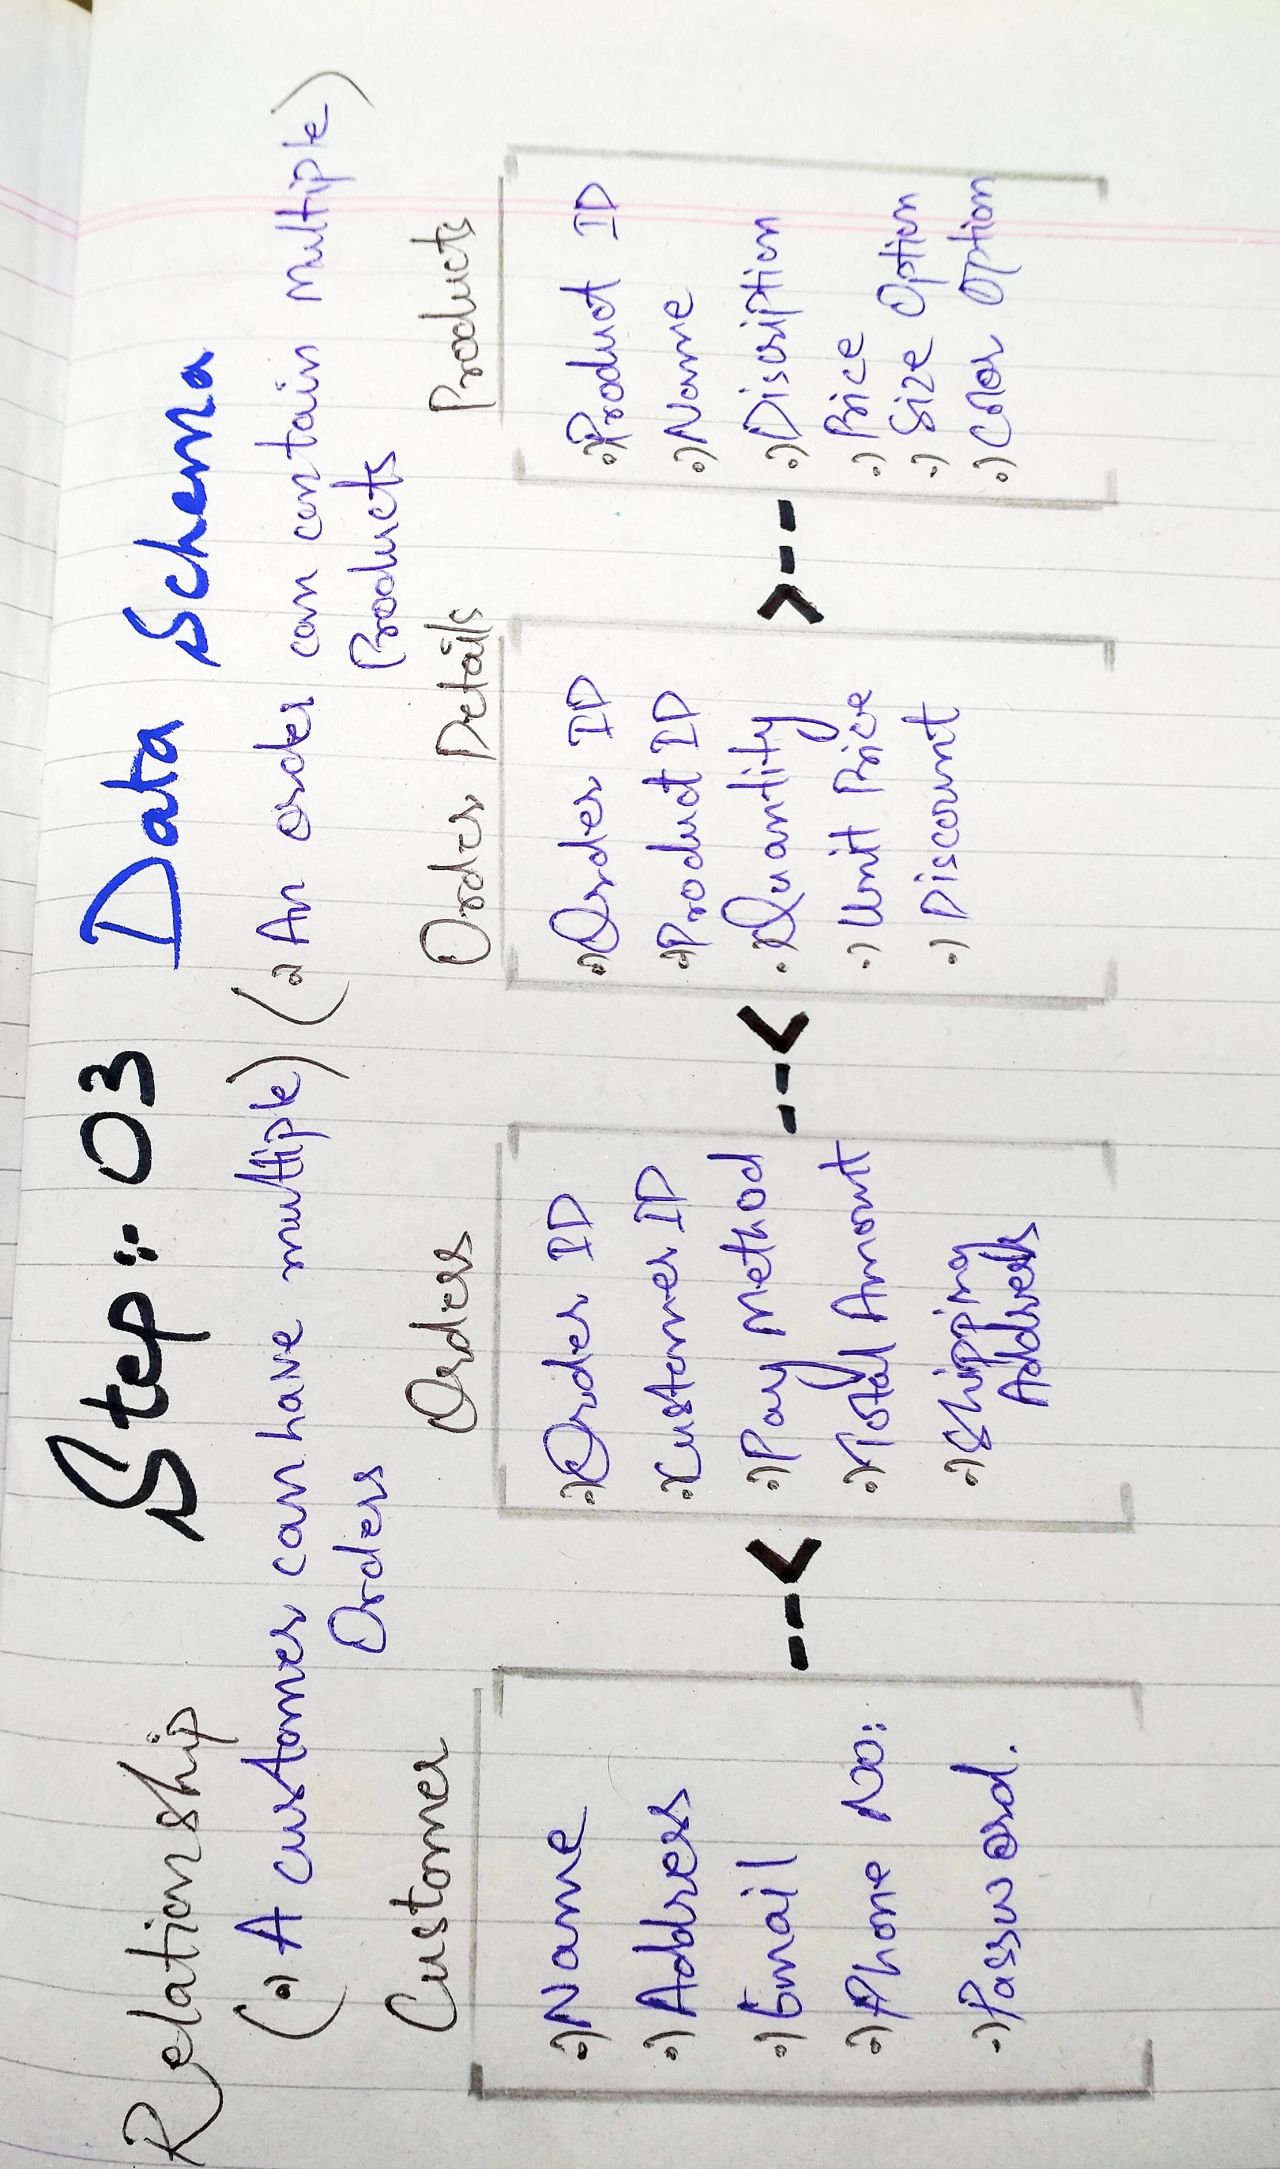 Step:: 03 Data Schema
Relationship
(•) A customer can have multiple) (•) An order can contain multiple)
Orders
Products
Customer
•) Name
•) Address
•) Email
•) Phone No::
•) Password.
--<
Orders
•) Order ID
•) Customer ID
•) Pay Method
•) Total Amount
•) Shipping
Address
--<
Order Details
•) Order ID
•) Product ID
•) Quantity
•) Unit Price
•) Discount
>--
Products
•) Product ID
•) Name
•) Discription
•) Price
•) Size Option
•) Color Option